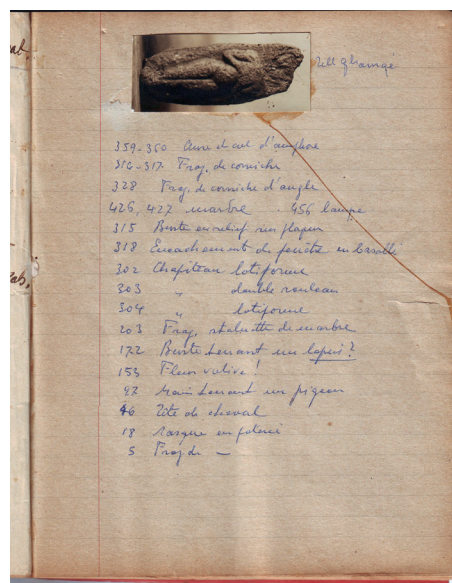 Tell ghamgé
359-360 Anse et col d'amphore
316-317 Frag. de corniche
328 Frag. de corniche d'angle
426, 427 marbre 456 lampe
315 Buste en relief sur plaque
318 Encadrement de fenêtre en basalte
302 Chapiteau lotiforme
303 " double rouleau
304 " lotiforme
203 Frag. statuette de marbre
172 Buste tenant un lapin ?
153 Fleur votive !
92 Main tenant un pigeon
46 Tête de cheval
18 Masque en
5 Frag de —